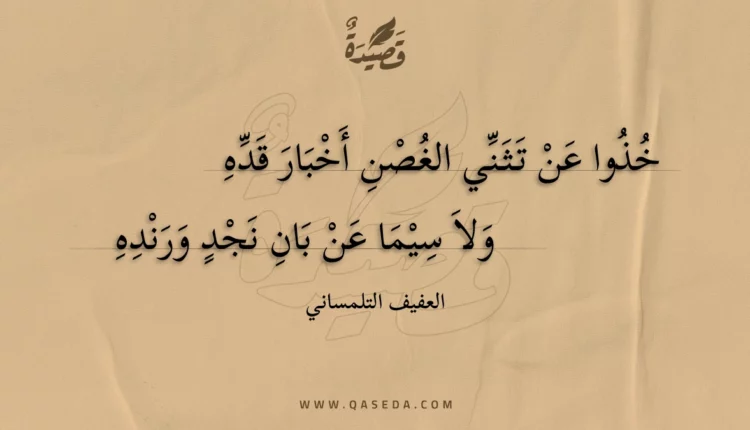 قَصِيدَةٌ
خُذُوا عَنْ تَثَنِّي الغُصْنِ أَخْبَارَ قَدِّهِ
وَلاَ سِيْمَا عَنْ بَانِ نَجْدٍ وَرَنْدِهِ
العفيف التلمساني
WWW.QASEDA.COM